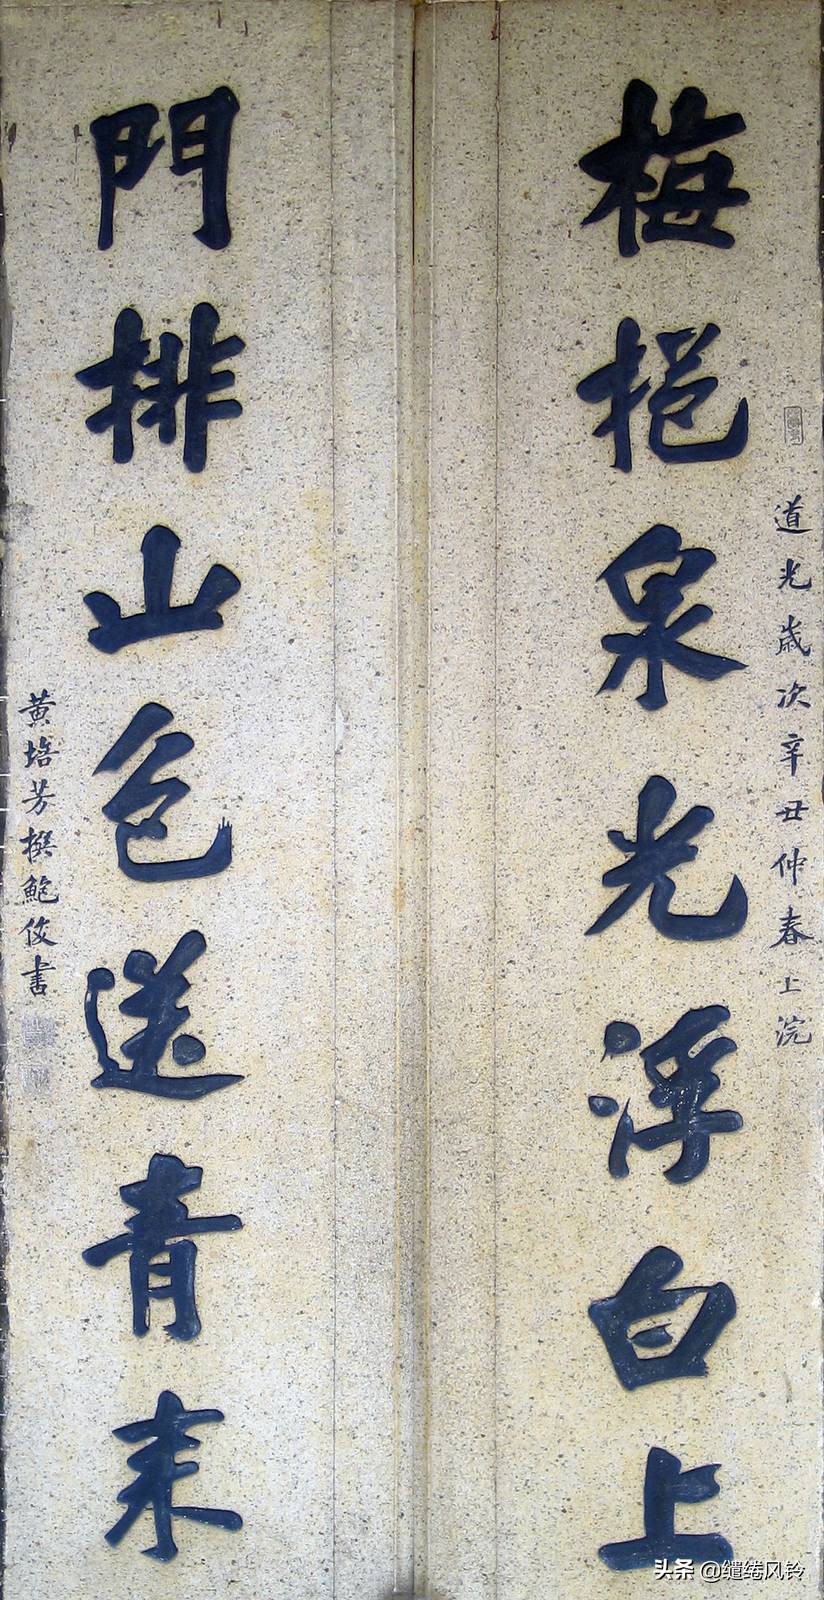 道光歲次辛丑仲春上浣
梅挹泉光浮白上
門排山色送青來
黃培芳撰鮑俊書
头条 @缱绻风铃